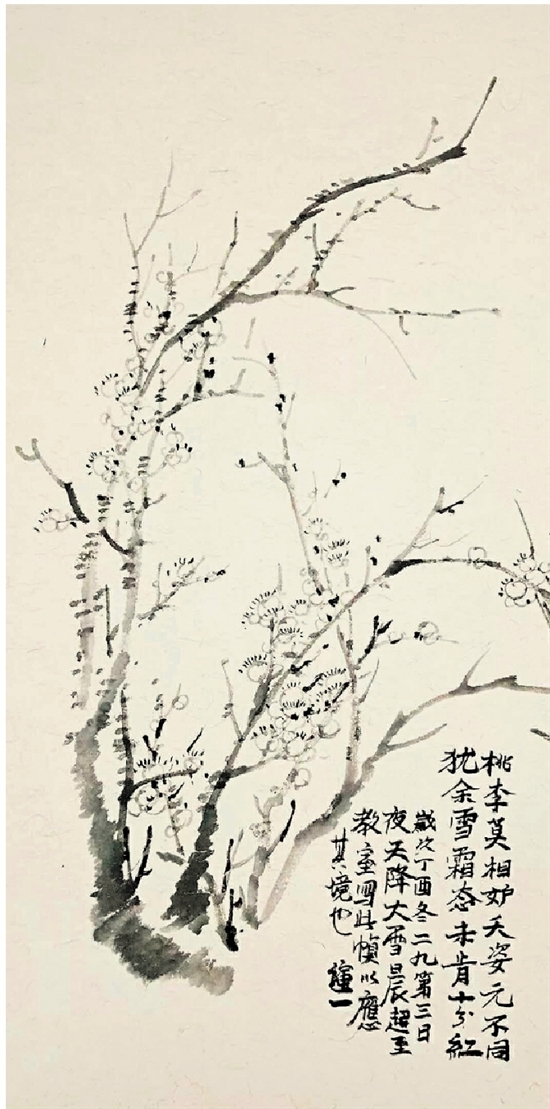 桃李莫相妒夭姿元不同
犹余雪霜态未肯十分紅
歲次丁酉冬二九第三日
夜天降大雪晨起至
教室寫此幀以應
其境也